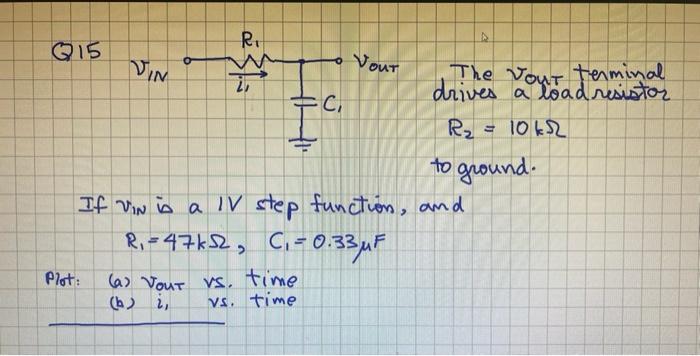 Q15
R₁
VIN
i₁
VOUT
C₁
The VOUT terminal
drives a load resistor
R₂ = 10 kΩ
to ground.
If VIN is a 1V step function, and
R₁ = 47kΩ, C₁ = 0.33μF
Plot: (a) VOUT vs. time
(b) i₁ vs. time